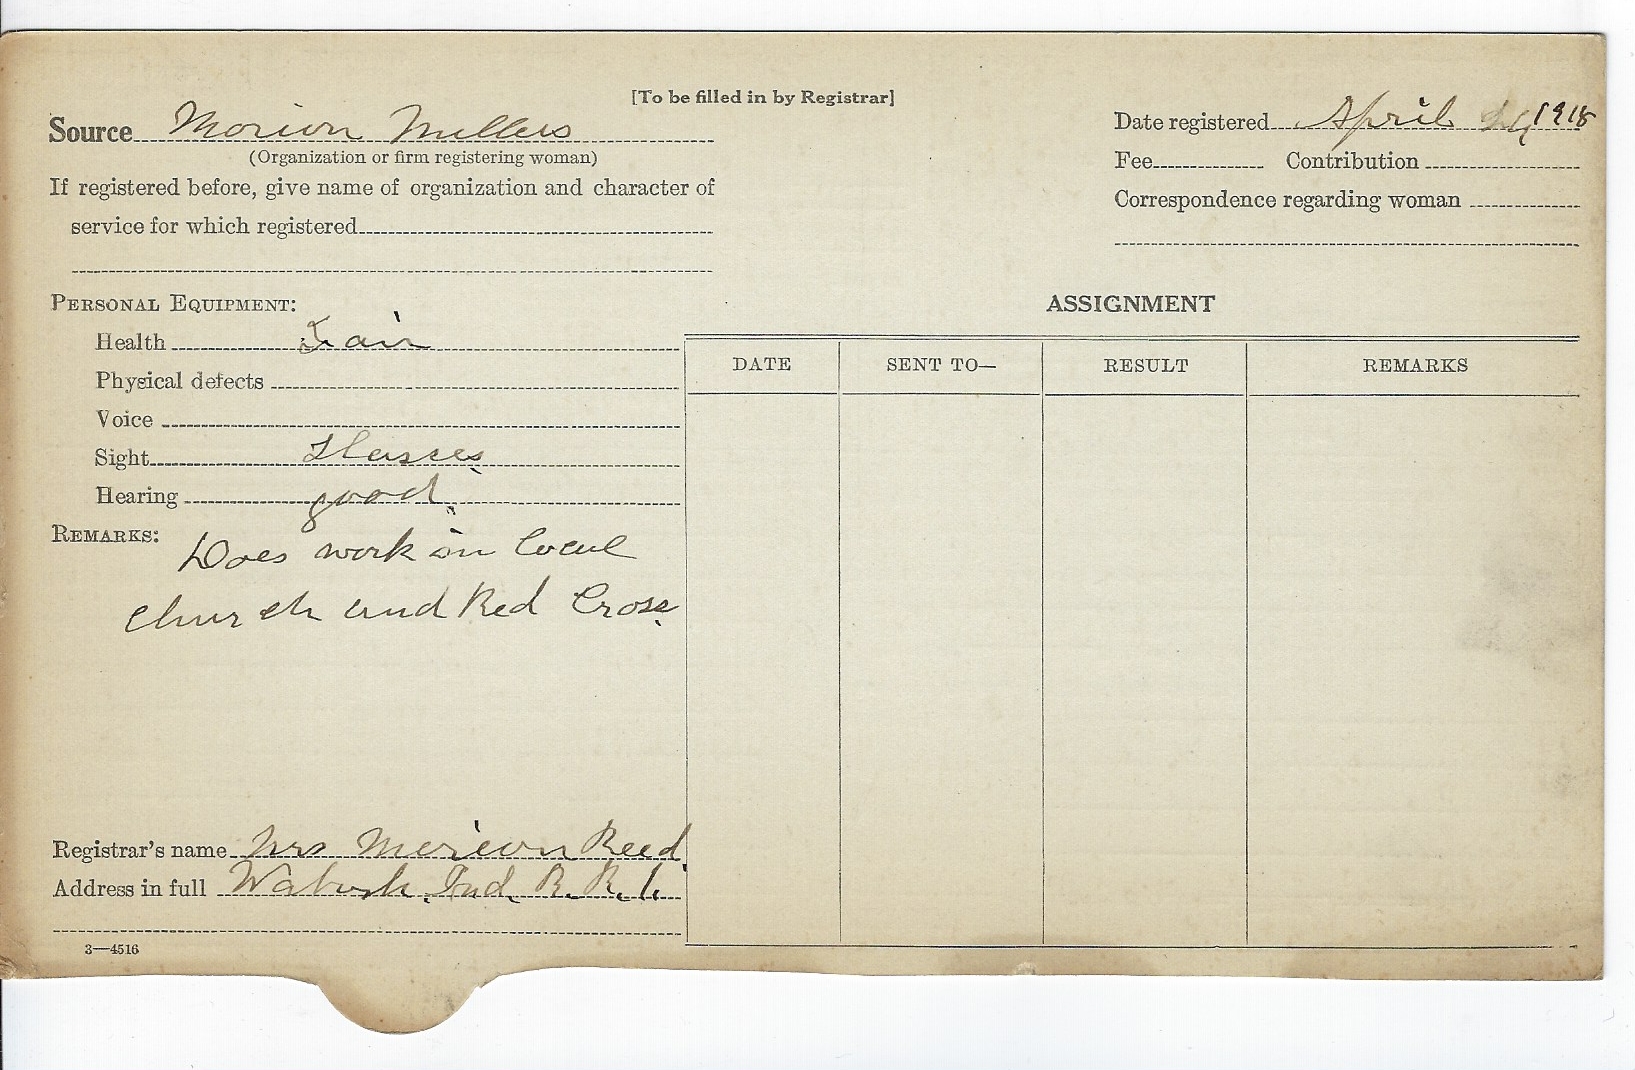 [To be filled in by Registrar]
Source Morion Millers
(Organization or firm registering woman)
If registered before, give name of organization and character of
service for which registered
Date registered April 1918
Fee Contribution
Correspondence regarding woman
PERSONAL EQUIPMENT:
Health Fair
Physical defects
Voice
Sight Glasses
Hearing good.
REMARKS: Does work in local
church and Red Cross.
Registrar's name Mrs Merion Reed.
Address in full Wabash, Ind. R. R. 1.
3—4516
ASSIGNMENT
DATE SENT TO— RESULT REMARKS